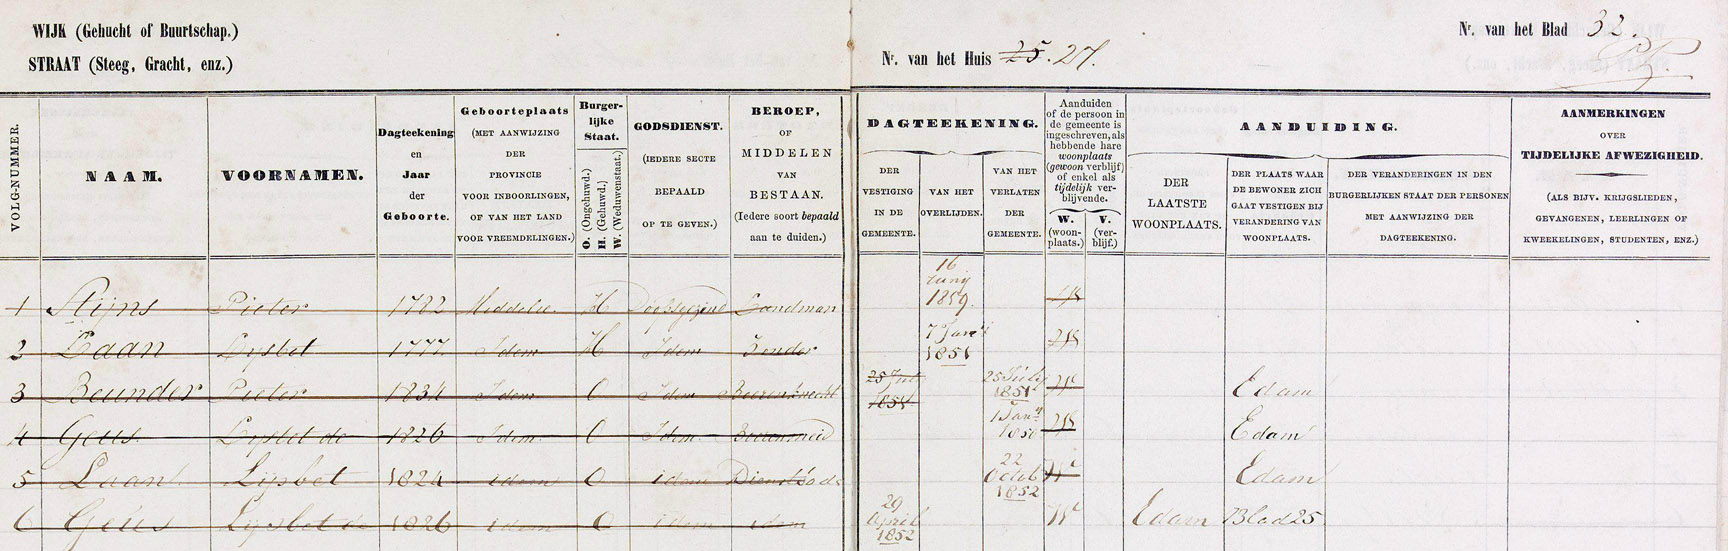 WIJK (Gehucht of Buurtschap.)
STRAAT (Steeg, Gracht, enz.)
Nr. van het Huis 25. 27.
Nr. van het Blad 32.
VOLG-NUMMER.
NAAM.
VOORNAMEN.
Dagteekening
en
Jaar
der
Geboorte.
Geboorteplaats
(MET AANWIJZING
DER
PROVINCIE
VOOR INBOORLINGEN,
OF VAN HET LAND
VOOR VREEMDELINGEN.)
Burger-
lijke
Staat.
O. (Ongehuwd.)
H. (Gehuwd.)
W. (Weduwenstaat.)
GODSDIENST.
(IEDERE SECTE
BEPAALD
OP TE GEVEN.)
BEROEP,
OF
MIDDELEN
VAN
BESTAAN.
(Iedere soort bepaald
aan te duiden.)
DAGTEEKENING.
DER
VESTIGING
IN DE
GEMEENTE.
VAN HET
OVERLIJDEN.
VAN HET
VERLATEN
DER
GEMEENTE.
Aanduiden
of de persoon in
de gemeente is
ingeschreven, als
hebbende hare
woonplaats
(gewoon verblijf)
of enkel als
tijdelijk ver-
blijvende.
W.
(woon-
plaats.)
V.
(ver-
blijf.)
AANDUIDING.
DER
LAATSTE
WOONPLAATS.
DER PLAATS WAAR
DE BEWONER ZICH
GAAT VESTIGEN BIJ
VERANDERING VAN
WOONPLAATS.
DER VERANDERINGEN IN DEN
BURGERLIJKEN STAAT DER PERSONEN
MET AANWIJZING DER
DAGTEEKENING.
AANMERKINGEN
OVER
TIJDELIJKE AFWEZIGHEID.
(ALS BIJV. KRIJGSLIEDEN,
GEVANGENEN, LEERLINGEN OF
KWEEKELINGEN, STUDENTEN, ENZ.)
1 Stijns Pieter 1782 Middelie H Doopsgezind Landman 16 Junij 1859. W
2 Laan Lysbet 1777 Idem H Idem Zonder 7 Jan 1851 W
3 Beunder Pieter 1834 Idem O Idem Boerenknecht 25 Juli 1851 25 July 1851 W Edam
4 Geus Lysbet de 1826 Idem O Idem Boerenmeid 1 Jan 1850 W Edam
5 Laan Lijsbet 1824 idem O idem Dienstbode 22 Octob 1852 W Edam
6 Geus Lysbet de 1826 idem O idem idem 29 April 1852 W Edam Blad 25